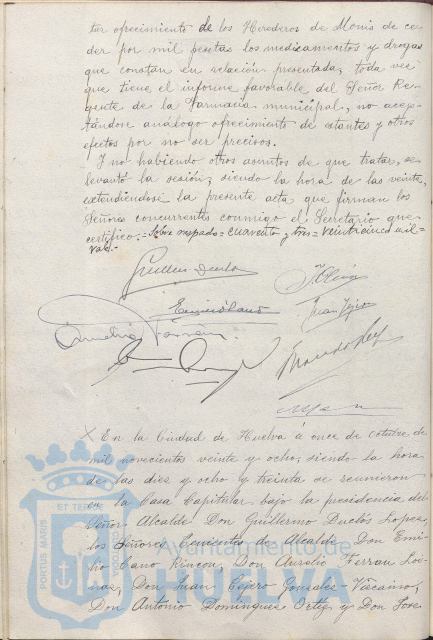 tar ofrecimiento de los Herederos de Monis de ce-
der por mil pesetas los medicamentos y drogas
que constan en relación presentada, toda vez
que tiene el informe favorable del Señor Re-
gente de la Farmacia municipal, no acep-
tándose análogo ofrecimiento de estantes y otros
efectos por no ser precisos.
Y no habiendo otros asuntos de que tratar, se
levantó la sesión, siendo la hora de las veinte,
extendiéndose la presente acta que firman los
Señores concurrentes conmigo el Secretario que
certifico.= Sobre raspado = cuarenta y tres = veinticinco mil =
vale.-
En la Ciudad de Huelva á once de Octubre de
mil novecientos veinte y ocho, siendo la hora
de las diez y ocho y treinta se reunieron
en la Casa Capitular bajo la presidencia del
Señor Alcalde Don Guillermo Duclós Lopez,
los Señores Tenientes de Alcalde Don Emi-
lio Cano Rincon, Don Aurelio Ferran Loi-
nas, Don Juan Tejero Gonzalez-Viscaino,
Don Antonio Dominguez Ortiz y Don Jose
PORTUS MARIS
ET TERRÆ
Ayuntamiento de
HUELVA